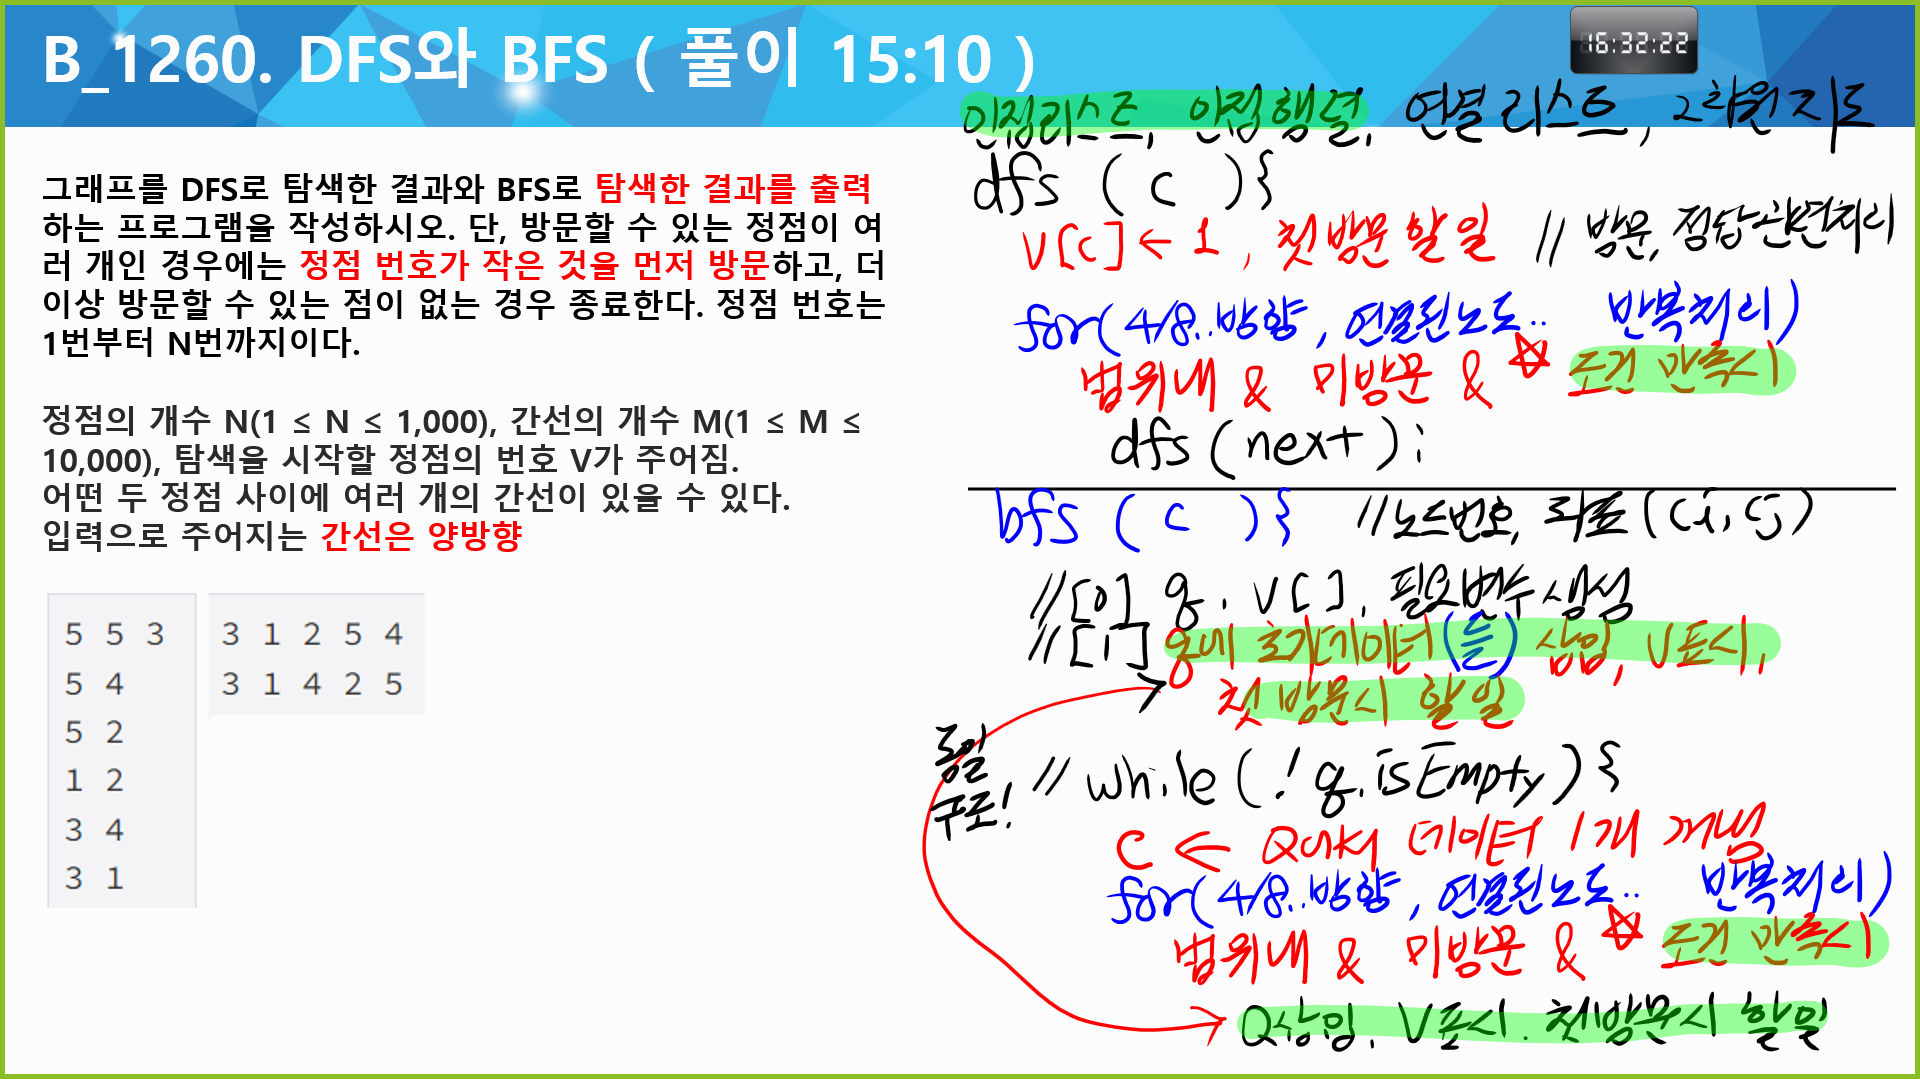 B_1260. DFS와 BFS ( 풀이 15:10 )
16:32:22
그래프를 DFS로 탐색한 결과와 BFS로 탐색한 결과를 출력
하는 프로그램을 작성하시오. 단, 방문할 수 있는 정점이 여
러 개인 경우에는 정점 번호가 작은 것을 먼저 방문하고, 더
이상 방문할 수 있는 점이 없는 경우 종료한다. 정점 번호는
1번부터 N번까지이다.
정점의 개수 N(1 ≤ N ≤ 1,000), 간선의 개수 M(1 ≤ M ≤
10,000), 탐색을 시작할 정점의 번호 V가 주어짐.
어떤 두 정점 사이에 여러 개의 간선이 있을 수 있다.
입력으로 주어지는 간선은 양방향
5 5 3
5 4
5 2
1 2
3 4
3 1
3 1 2 5 4
3 1 4 2 5
인접리스트, 인접행렬, 연결리스트, 2차원지도
dfs ( c ){
v[c] ← 1, 첫방문 할일 // 방문, 정답관련처리
for(4/8..방향, 연결된노드.. 반복처리)
범위내 & 미방문 & ☆ 조건 만족시
dfs(next);
bfs ( c ){ //노드번호, 좌표(ci, cj)
//[0] q, v[], 필요변수 생성
//[1] q에 초기데이터(들) 삽입, V표시,
첫 방문시 할일
동일
구조!
// while(!q.isEmpty){
c ← Q에서 데이터 1개 꺼냄
for(4/8..방향, 연결된노드.. 반복처리)
범위내 & 미방문 & ☆ 조건 만족시
Q삽입, V표시. 첫방문시 할일